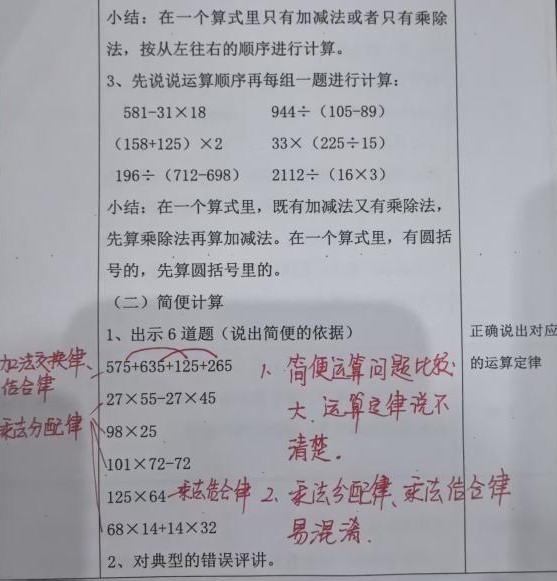 小结：在一个算式里只有加减法或者只有乘除
法，按从左往右的顺序进行计算。
3、先说说运算顺序再每组一题进行计算：
581-31×18 944÷（105-89）
（158+125）×2 33×（225÷15）
196÷（712-698） 2112÷（16×3）
小结：在一个算式里，既有加减法又有乘除法，
先算乘除法再算加减法。在一个算式里，有圆括
号的，先算圆括号里的。
（二）简便计算
1、出示6道题（说出简便的依据）
正确说出对应
的运算定律
加法交换律、
结合律
575+635+125+265
27×55-27×45
乘法分配律
98×25
101×72-72
125×64
乘法结合律
68×14+14×32
1、简便运算问题比较
大、运算定律说不
清楚。
2、乘法分配律、乘法结合律
易混淆.
2、对典型的错误评讲。